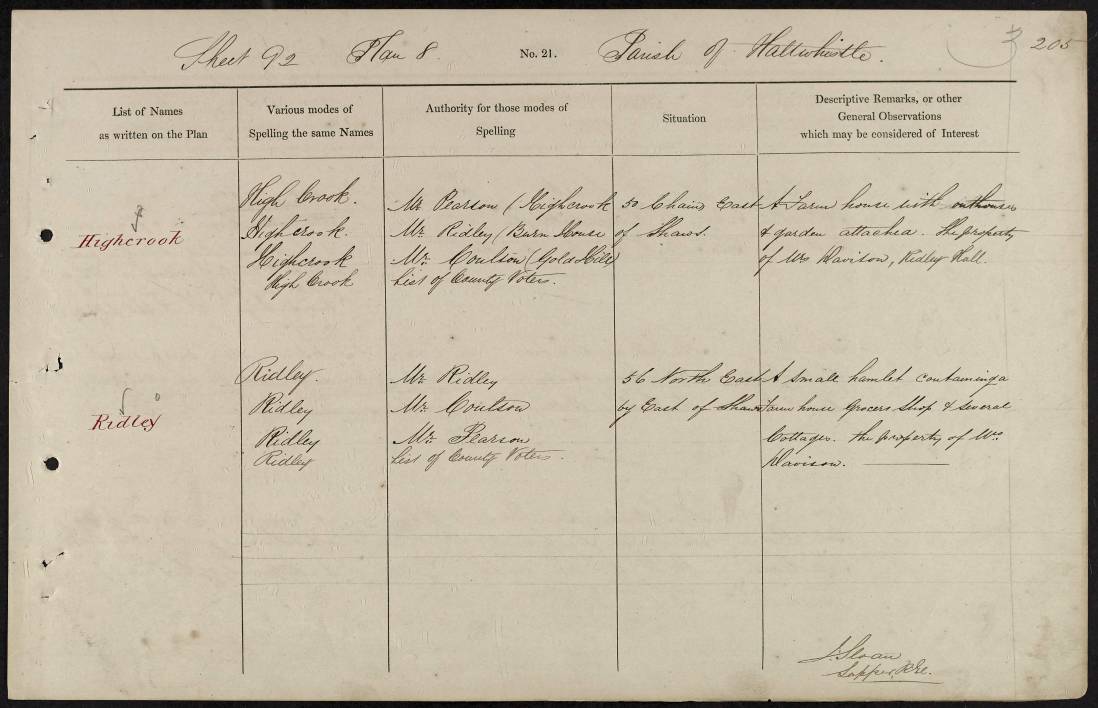 Sheet 92 Plan 8 No. 21. Parish of Haltwhistle. 3 205
List of Names as written on the Plan
Various modes of Spelling the same Names
Authority for those modes of Spelling
Situation
Descriptive Remarks, or other General Observations which may be considered of Interest
Highcrook
High Crook. Mr. Pearson (Highcrook 50 Chains East A Farm house with outhouses
High crook. Mr. Ridley (Burn House of Shaws. & garden attached. The property
Highcrook Mr. Coulson (Gold Hill) of Mrs Davison, Ridley Hall.
High Crook List of County Voters.
Ridley
Ridley. Mr. Ridley 56 North East A small hamlet containing a
Ridley Mr. Coulson by East of Shaws Farm house Grocers Shop & several
Ridley Mr. Pearson Cottages. The property of Mrs.
Ridley List of County Voters. Davison.
J. Sloan
Sapper, R.E.